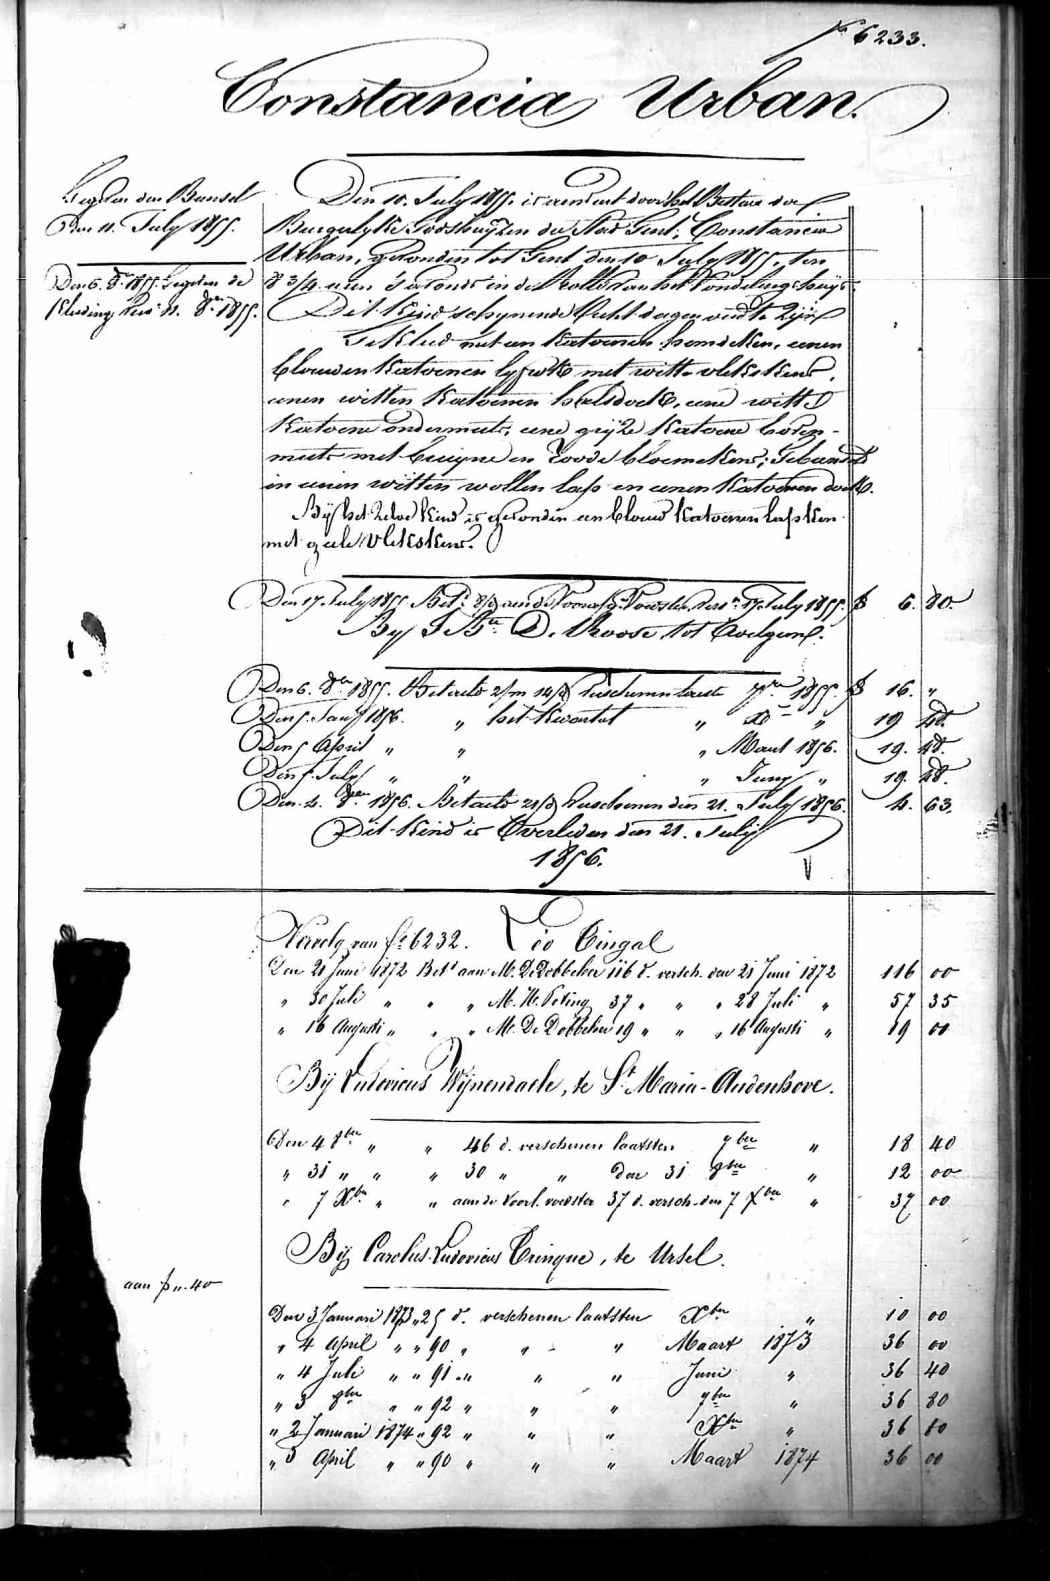 Nº 6233.
Constancia Urban.
Gegeven den Bundsel
Den 11. July 1855.
Den 6. 8ber 1855. Gegeven de
Kleeding 8ber 1855.
Den 10. July 1855. is aenveert door het Bestuer der
Burgerlyke Godshuyzen der Stad Gent, Constancia
Urban, gevonden tot Gent den 10 July 1855, ten
8 3/4 uren 's avonds in de Rolle van het Vondelingshuys.
Dit Kind schynende Acht dagen oud te Zyn
Gekleed met een Katoenen hemdeken, eenen
blauwen Katoenen lyfrok met witte vlekskens,
eenen witten Katoenen halsdoek, eene witte
Katoene ondermuts, eene gryze Katoene boven-
muts met bruyne en roode bloemekens; Gebundeld
in eenen witten wollen lap en eenen Katoenen doek.
By het zelve Kind is gevonden een blauw Katoenen lapken
met geele vlekskens.
Den 17. July 1855 Bet. 8/d aen de Voorl. Voedster vers. 17. July 1855. f 6. 80
By J. Bte D. Roose tot Avelgem.
Den 6. 8ber 1855. Betaeld 2/m 14/d verschenen laeste 7ber 1855. f 16. "
Den 5. Jany 1856. " het Kwartal " Xb " 19 48.
Den 5 April " " " Maert 1856. 19. 48.
Den 5. July " " " Juny " 19. 48.
Den 4. 8ber 1856. Betaeld 21/d verschenen den 21. July 1856. 4. 63.
Dit Kind is Overleden den 21. July
1856.
Vervolg van Fo 6232. Léo Tingal
Den 21 Juni 1872 Bet. aan M. De Dobbelaer 116 d. versch. den 21 Juni 1872 116 00
" 30 Juli " " " M. H. Peting 37 " " " 28 Juli " 57 35
" 16 Augusti " " " M. De Dobbelaer 19 " " " 16 Augusti " 19 00
Bij Ludovicus Wynendaele, te St Maria-Audenhove.
Den 4 8ber " " 46 d. verschenen laatsten 7ber " 18 40
" 31 " " " 30 " " den 31 8ber " 12 00
" 7 Xber " " aan de voorl. voedster 37 d. versch. den 7 Xber " 37 00
Bij Carolus-Ludovicus Cringue, te Ursel.
aan f 0.40
Den 3 Januari 1873 " 25 d. verschenen laatsten Xber " 10 00
" 4 April " " 90 " " " Maart 1873 36 00
" 4 Juli " " 91 " " " Juni " 36 40
" 3 8ber " " 92 " " " 7ber " 36 80
" 2 Januari 1874 " 92 " " " Xber " 36 80
" 3 April " " 90 " " " Maart 1874 36 00